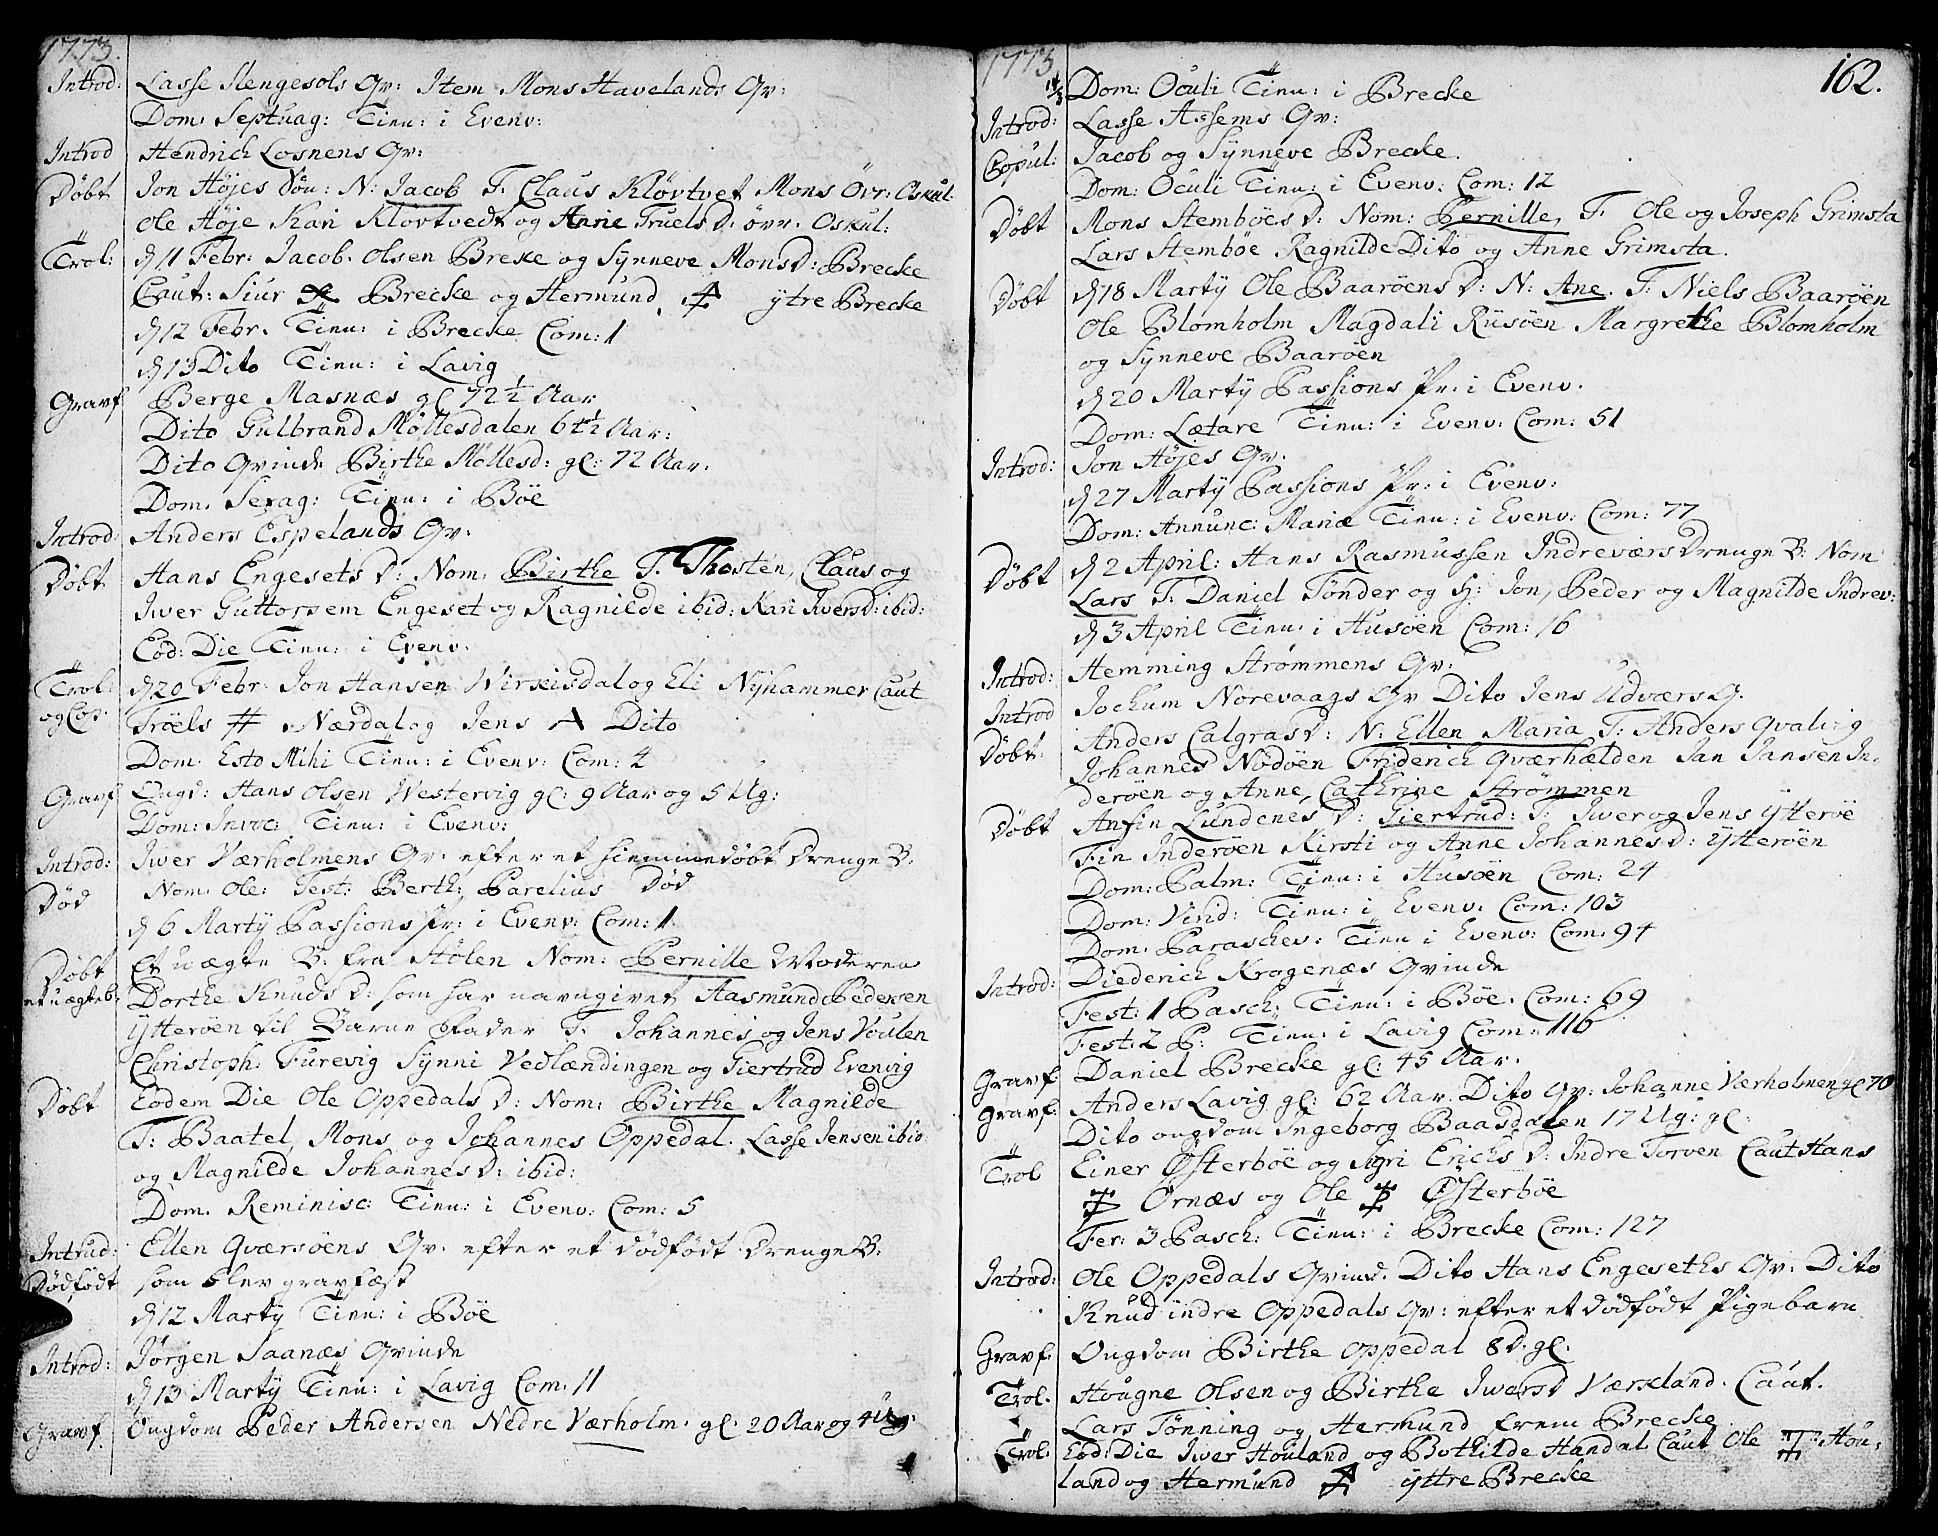 1773.
Introd: Lasse Slengesols Qv: Item Mons Havelands Qv:
Dom. Septuag: Tien: i Evenv:
Introd Hendrich Losnens Qv:
Døbt Jon Höjes Sön: N: Jacob T: Claus Klövtvet Mons Övr: Oskul.
Ole Höje Kari Klövtvedt og Anne Truels D: övr. Oskul:
Trol: d 11 Febr: Jacob Olsen Breke og Synneve Mons D: Brecke
Caut: Siur Brecke og Hermund ytre Brecke
d 12 Febr. Tien: i Brecke Com: 1
d 13 Dito Tien: i Lavig
Gravf Berge Masnæs gl 72 1/2 Aar
Dito Gulbrand Möllesdalen 64 1/2 Aar:
Dito Qvinde Birthe Möllesd: gl: 72 Aar.
Dom. Sexag: Tien: i Böe
Introd: Anders Espelands Qv.
Døbt Hans Engesets D: Nom. Birthe T. Thosten, Claus og
Iwer Guttormsem Engeset og Ragnilde ibid: Kari Ivers D: ibid:
Eod: Die Tien: i Evenv.
Trol: d 20 Febr. Jon Hansen Wirkisdal og Eli Nyhammer Caut
og Cop. Tröels # Nærdal og Jens A Dito
Dom. Esto Mihi Tien: i Evenv: Com: 4
Gravf Ongd: Hans Olsen Westervig gl: 9 Aar og 5 Ug:
Dom: Invoc: Tien: i Evenv:
Introd: Iwer Værholmens Qv. efter et hiemmedøbt Drenge B:
Død Nom. Ole: Test: Berth: Parelius Død
d 6 Marty Passions Pr: i Evenv: Com: 1
Døbt Et uægte B. fra Stölen Nom: Pernille Moderen
et uægte b: Dorthe Knuds D: som har navngivet Aasmund Pedersen
Ytteröen til Barne Fader T. Johannes og Jens Voulen
Christoph: Furevig Synni Vedlændingen og Giertrud Evenvig
Døbt Eodem Die Ole Oppedals D: Nom: Birthe Magnilde
T: Baatel, Mons og Johannes Oppedal. Lasse Jensen ibid
og Magnilde Johannes D: ibid:
Dom. Reminisc: Tien: i Evenv: Com: 5
Intrud: Ellen Qværsöens Qv. efter et dödfödt Drenge B:
Dödfödt som blev gravfæst
d 12 Marty Tien: i Böe
Introd: Jörgen Saanæs Qvinde
d 13 Marty Tien: i Lavig Com. 11
Gravf. Ongdom Peder Andersen Nedre Værholm. gl. 20 Aar og 4 Ug.
1773
162.
14/3 Dom: Oculi Tien: i Brecke
Introd: Lasse Assems Qv:
Copul: Jacob og Synneve Brecke.
Dom: Oculi Tien: i Evenv: Com: 12
Døbt Mons Stemböes D: Nom: Pernille, T. Ole og Joseph Grimsta
Lars Stemböe Ragnilde Dito og Anne Grimsta.
Døbt d 18 Marty Ole Baaröens D: N: Ane. T: Niels Baaröen
Ole Blomholm Magdali Risöen Margrethe Blomholm
og Synneve Baaröen
d 20 Marty Passions Pr: i Evenv.
Dom: Lætare Tien: i Evenv: Com: 51
Introd: Jon Höjes Qv.
d 27 Marty Passions Pr: i Evenv:
Dom: Annunc: Mariæ Tien: i Evenv: Com: 77
Døbt d 2 April: Hans Rasmussen Indreværs Drenge B: Nom
Lars T: Daniel Tönder og H: Jon, Peder og Magnilde Indrev:
d 3 April Tien: i Husöen Com: 16
Introd: Hemming Strömmens Qv:
Introd Jochum Norevaags Qv Dito Jens Udværs Q.
Døbt. Anders Calgras D: N: Ellen Maria T: Anders Qvalvig
Johannes Nödöen Friderich Qværhælden Jan Jansen In-
deröen og Anne Cathrine Strömmen
Døbt Anfin Lundenes D: Giertrud: T: Iwer og Jens Ytteröe
Fin Inderöen Kirsti og Anne Johannes D: Ytteröen
Dom: Palm: Tien: i Husöen Com: 24
Dom: Virid: Tien: i Evenv: Com: 103
Dom: Paraschev: Tien i Evenv: Com: 94
Introd: Diederich Krogenæs Qvinde
Fest: 1 Pasch: Tien: i Böe. Com: 69
Fest: 2 P: Tien: i Lavig Com: 116
Gravf: Daniel Brecke gl: 45 Aar.
Gravf: Anders Lavig gl: 62 Aar. Dito Qv: Johanne Værholmen gl 70
Dito ongdom Ingeborg Baasdalen 17 Ug: gl:
Trol Einer Østerböe og Sigri Erichs D: Indre Torven Caut Hans
Örnæs og Ole Østerböe
Fer: 3 Pasch: Tien: i Brecke Com: 127
Introd: Ole Oppedals Qvind. Dito Hans Engeseths Qv: Dito
Knud indre Oppedals Qv: efter et dödfödt Pigebarn
Gravf: Ongdom Birthe Oppedal 8 D. gl:
Trol. Hougne Olsen og Birthe Iwers D Værkland. Caut.
Lars Tönning og Hermund Brecke
Trol: Eod: Die Iwer Houland og Bothilde Handal Caut Ole Hou-
land og Hermund yttre Brecke